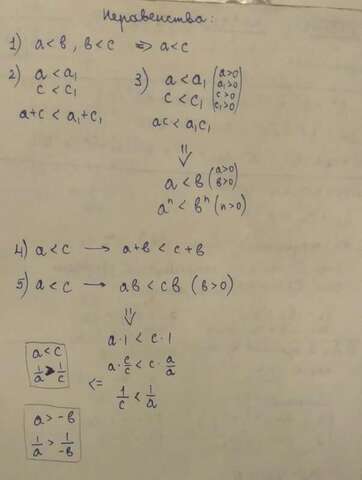 Неравенства:
1) a < b, b < c ⇒ a < c
2) a < a₁
c < c₁
a+c < a₁+c₁
3) a < a₁ (a>0
c < c₁ a₁>0
c>0
c₁>0)
ac < a₁c₁
⇓
a < b (a>0
b>0)
aⁿ < bⁿ (n>0)
4) a < c → a+b < c+b
5) a < c → ab < cb (b>0)
⇓
a·1 < c·1
a·c/c < c·a/a
<= 1/c < 1/a
a < c
1/a > 1/c
a > -b
1/a > 1/-b